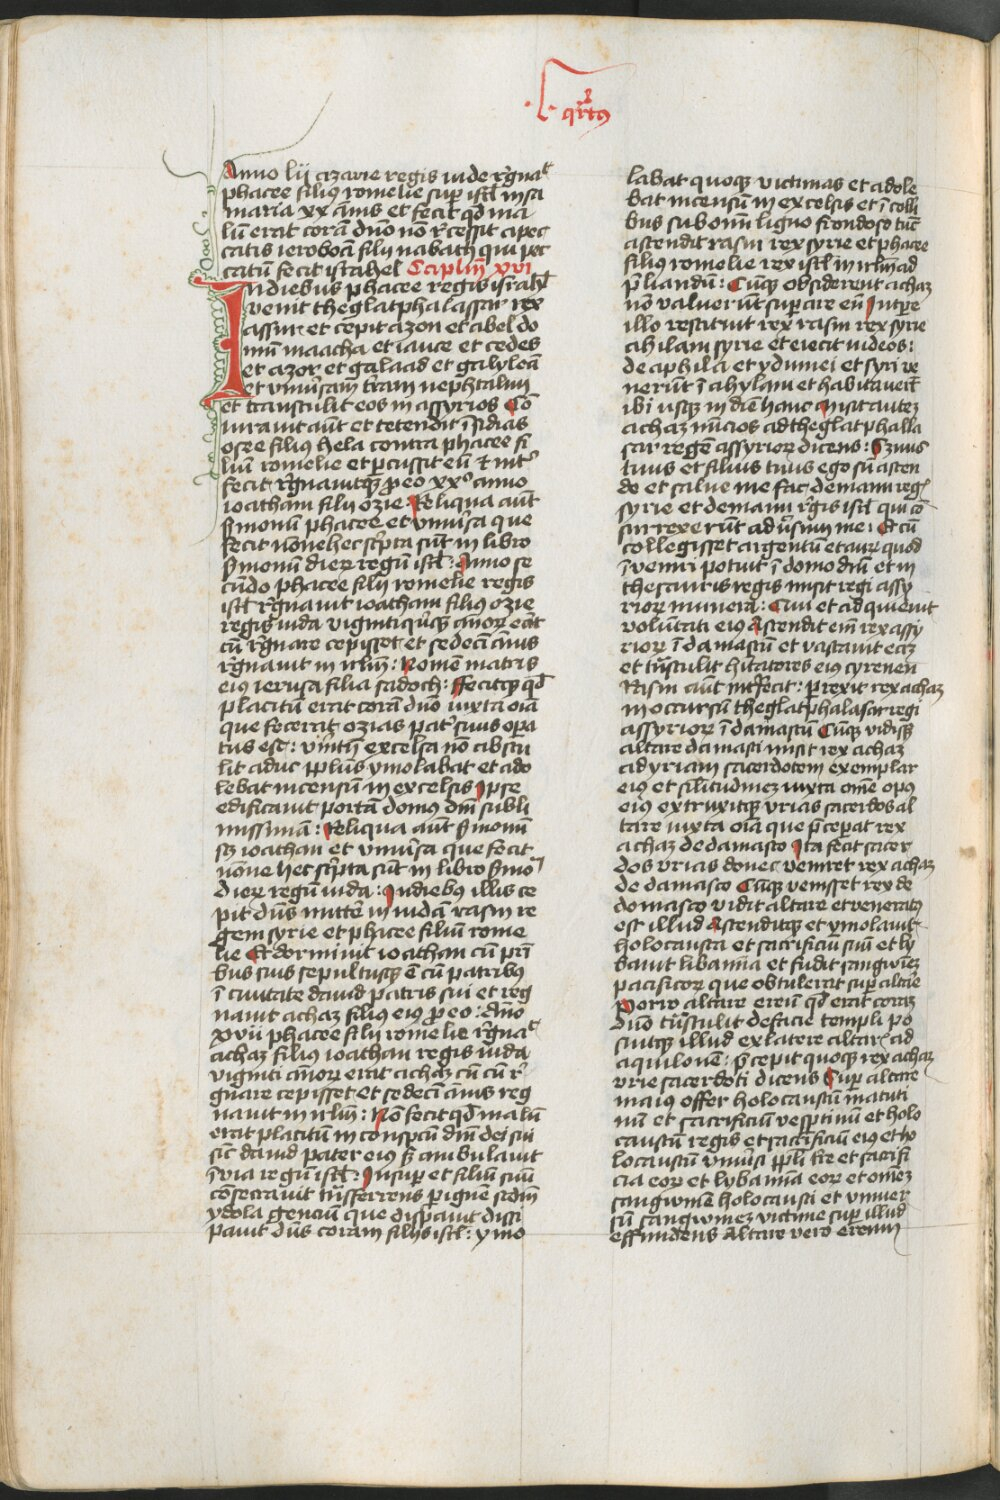 .L. qrtꝰ
Anno lii azarie regis iude rͤgnaͭ
phacee filiꝰ romelie sup̄ isrl̄ in sa
maria xx ānis et fecit qd̄ ma
lū erat corā dn̄o nō rͤcessit a pec
catis ieroboā filii nabath qui pec
catū fecit israhel Capłm̄ xvi
In diebus phacee regis israhl̄
venit theglatphalassar rex
assur et cepit azon et abel do
mū maacha et ianoe et cedes
et azor et galaad et galyleā
et vniūsam tr̄am neptalim
et transtulit eos in assyrios Cō
iurauit aūt et tetendit īsidias
osee filius hela contra phacee fi
liū romelie et ꝑcussit eū ⁊ intͬ
fecit rͤgnauitqꝫ ꝓ eo xxͦ anno
ioatham filii ozie Reliqua aūt
s̄monū phacee et vniūsa que
fecit nōne hec sc̄pta sūt in libro
s̄monū dierꝫ regū isrl̄: Anno se
cūdo phacee filii romelie regis
isrl̄ rͤgnauit ioatham filiꝰ ozie
regis iuda viginti qīnqꝫ ānorꝫ erat
cū rͤgnare cepisset et sedecī ānis
rͤgnauit in irlm̄: Nomē matris
eiꝰ ierusa filia sadoch: ffecitqꝫ qd̄
placitū erat corā dn̄o iuxta oīa
que fecerat ozias pat̄ suus opa
tus est: vn̄tn̄ excelsa nō abstu
lit aduc ppl̄us ymolabat et ado
lebat incensū in excelsis Ipse
edificauit portā domus dn̄i subli
missimā: Reliqua aūt s̄monū
ioathan et vniūsa que fecit
nōne hec sc̄pta sūt in libro s̄monͫ
dierꝫ regū iuda: In diebꝰ illis ce
pit dn̄s mittē in iudā rasin re
gem syrie et phacee filiū rome
lie Et dormiuit ioathan cū pr̄i
bus suis sepultusqꝫ ē cū patribꝰ
ī ciuitate dauid patris sui et reg
nauit achaz filius eiꝰ ꝓ eo: Anō
xvii phacee filii romelie rͤgnaͭ
achaz filius ioathan regis iuda
viginti ānorꝫ erat achaz cū rͤ
gnare cepisset et sedecī ānis reg
nauit in irlm̄: Nō fecit qd̄ malū
erat placitū in conspcū dn̄i dei sui
sic̄ dauid pater eiꝰ s̄ ambulauit
ī via regū isrl̄: Insup et filiū suū
cōsecrauit trāsferrens ꝑ ignē sc̄dm̄
ydola genciū que disp̄auit dissi
pauit dn̄s coram filiis isrl̄: ymo
labat quoqꝫ victimas et adole
bat incensū in excelsis et ī colli
bus sub om̄i ligno frondoso tūc
ascendit rasin rex syrie et phacee
filius romelie rex isrl̄ in irlm̄ ad
p̄liandū: Cūqꝫ obsiderent achaz
nō valuerūt superare eū In tꝑe
illo restituit rex rasin rex syrie
ahilam syrie et eiecit iudeos:
de aphila et ydumei et syri ve
nerūt ī ahylam et habitauerūt
ibi usqꝫ in diē hanc misit autez
achaz nūcios ad theglatphalla
sar regē assyriorꝫ dicens: Seruus
tuus et filius tuus ego sū ascen
de et salue me fac de manu regꝭ
syrie et de manu rͤgis isrl̄ qui cō
surrexerūt adūsum me: Et cū
collegisset argentū et aurꝫ quod
īveniri potuit ī domo dn̄i et in
thesauris regis misit regi assy
riorꝫ munera: Cui et adquieuit
volūtati eiꝰ Ascendit em̄ rex assy
riorꝫ ī damascū et vastauit eaꝫ
et trāstulit hītatores eiꝰ cyrenen
Rasin aūt intͬfecit: ꝑrexit rex achaz
in occursū theglatphalasar regi
assyriorꝫ ī damascū Cūqꝫ vidissꝫ
altare damasci misit rex achaz
ad yriam sacerdotem exemplar
eiꝰ et silītudinez iuxta om̄e opꝰ
eiꝰ extruxitqꝫ vrias sacerdos al
tare iuxta oīa que p̄ceperat rex
achaz de damasco Ita fecit sacer
dos vrias donec veniret rex achaz
de damasco Cūqꝫ venisset rex de
domasco vidit altare et veneratꝰ
est illud Ascenditqꝫ et ymolauit
holocausta et sacrificiū suū et ly
bauit libamīa et fudit sangwinē
pacificorꝫ que obtulerat sup altare
Porro altare ereū qd̄ erat coraꝫ
dn̄o trāstulit de facie templi po
suitqꝫ illud ex latere altarꝭ ad
aquilonē: p̄cepit quoqꝫ rex achaz
vrie sacerdoti dicens Sup altare
maiꝰ offer holocaustū matuti
nū et sacrificiū vesptinū et holo
caustū regis et sacrificiū eiꝰ et ho
locaustū vniūsi ppl̄i tr̄e et sacrifi
cia eorꝫ et lybamīa eorꝫ et om̄ez
sangwinē holocausti et vniuer
sū sangwinez victime sup illud
effundens Altare vero ereum